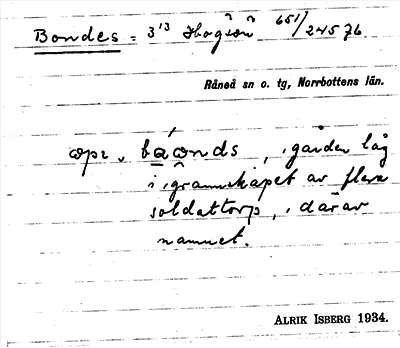 Bondes = 3¹³ Högsön 651/24576
Råneå sn o. tg, Norrbottens län.
opr. bǻonds, gården låg
i grannskapet av flera
soldattorp, därav
namnet.
ALRIK ISBERG 1934.